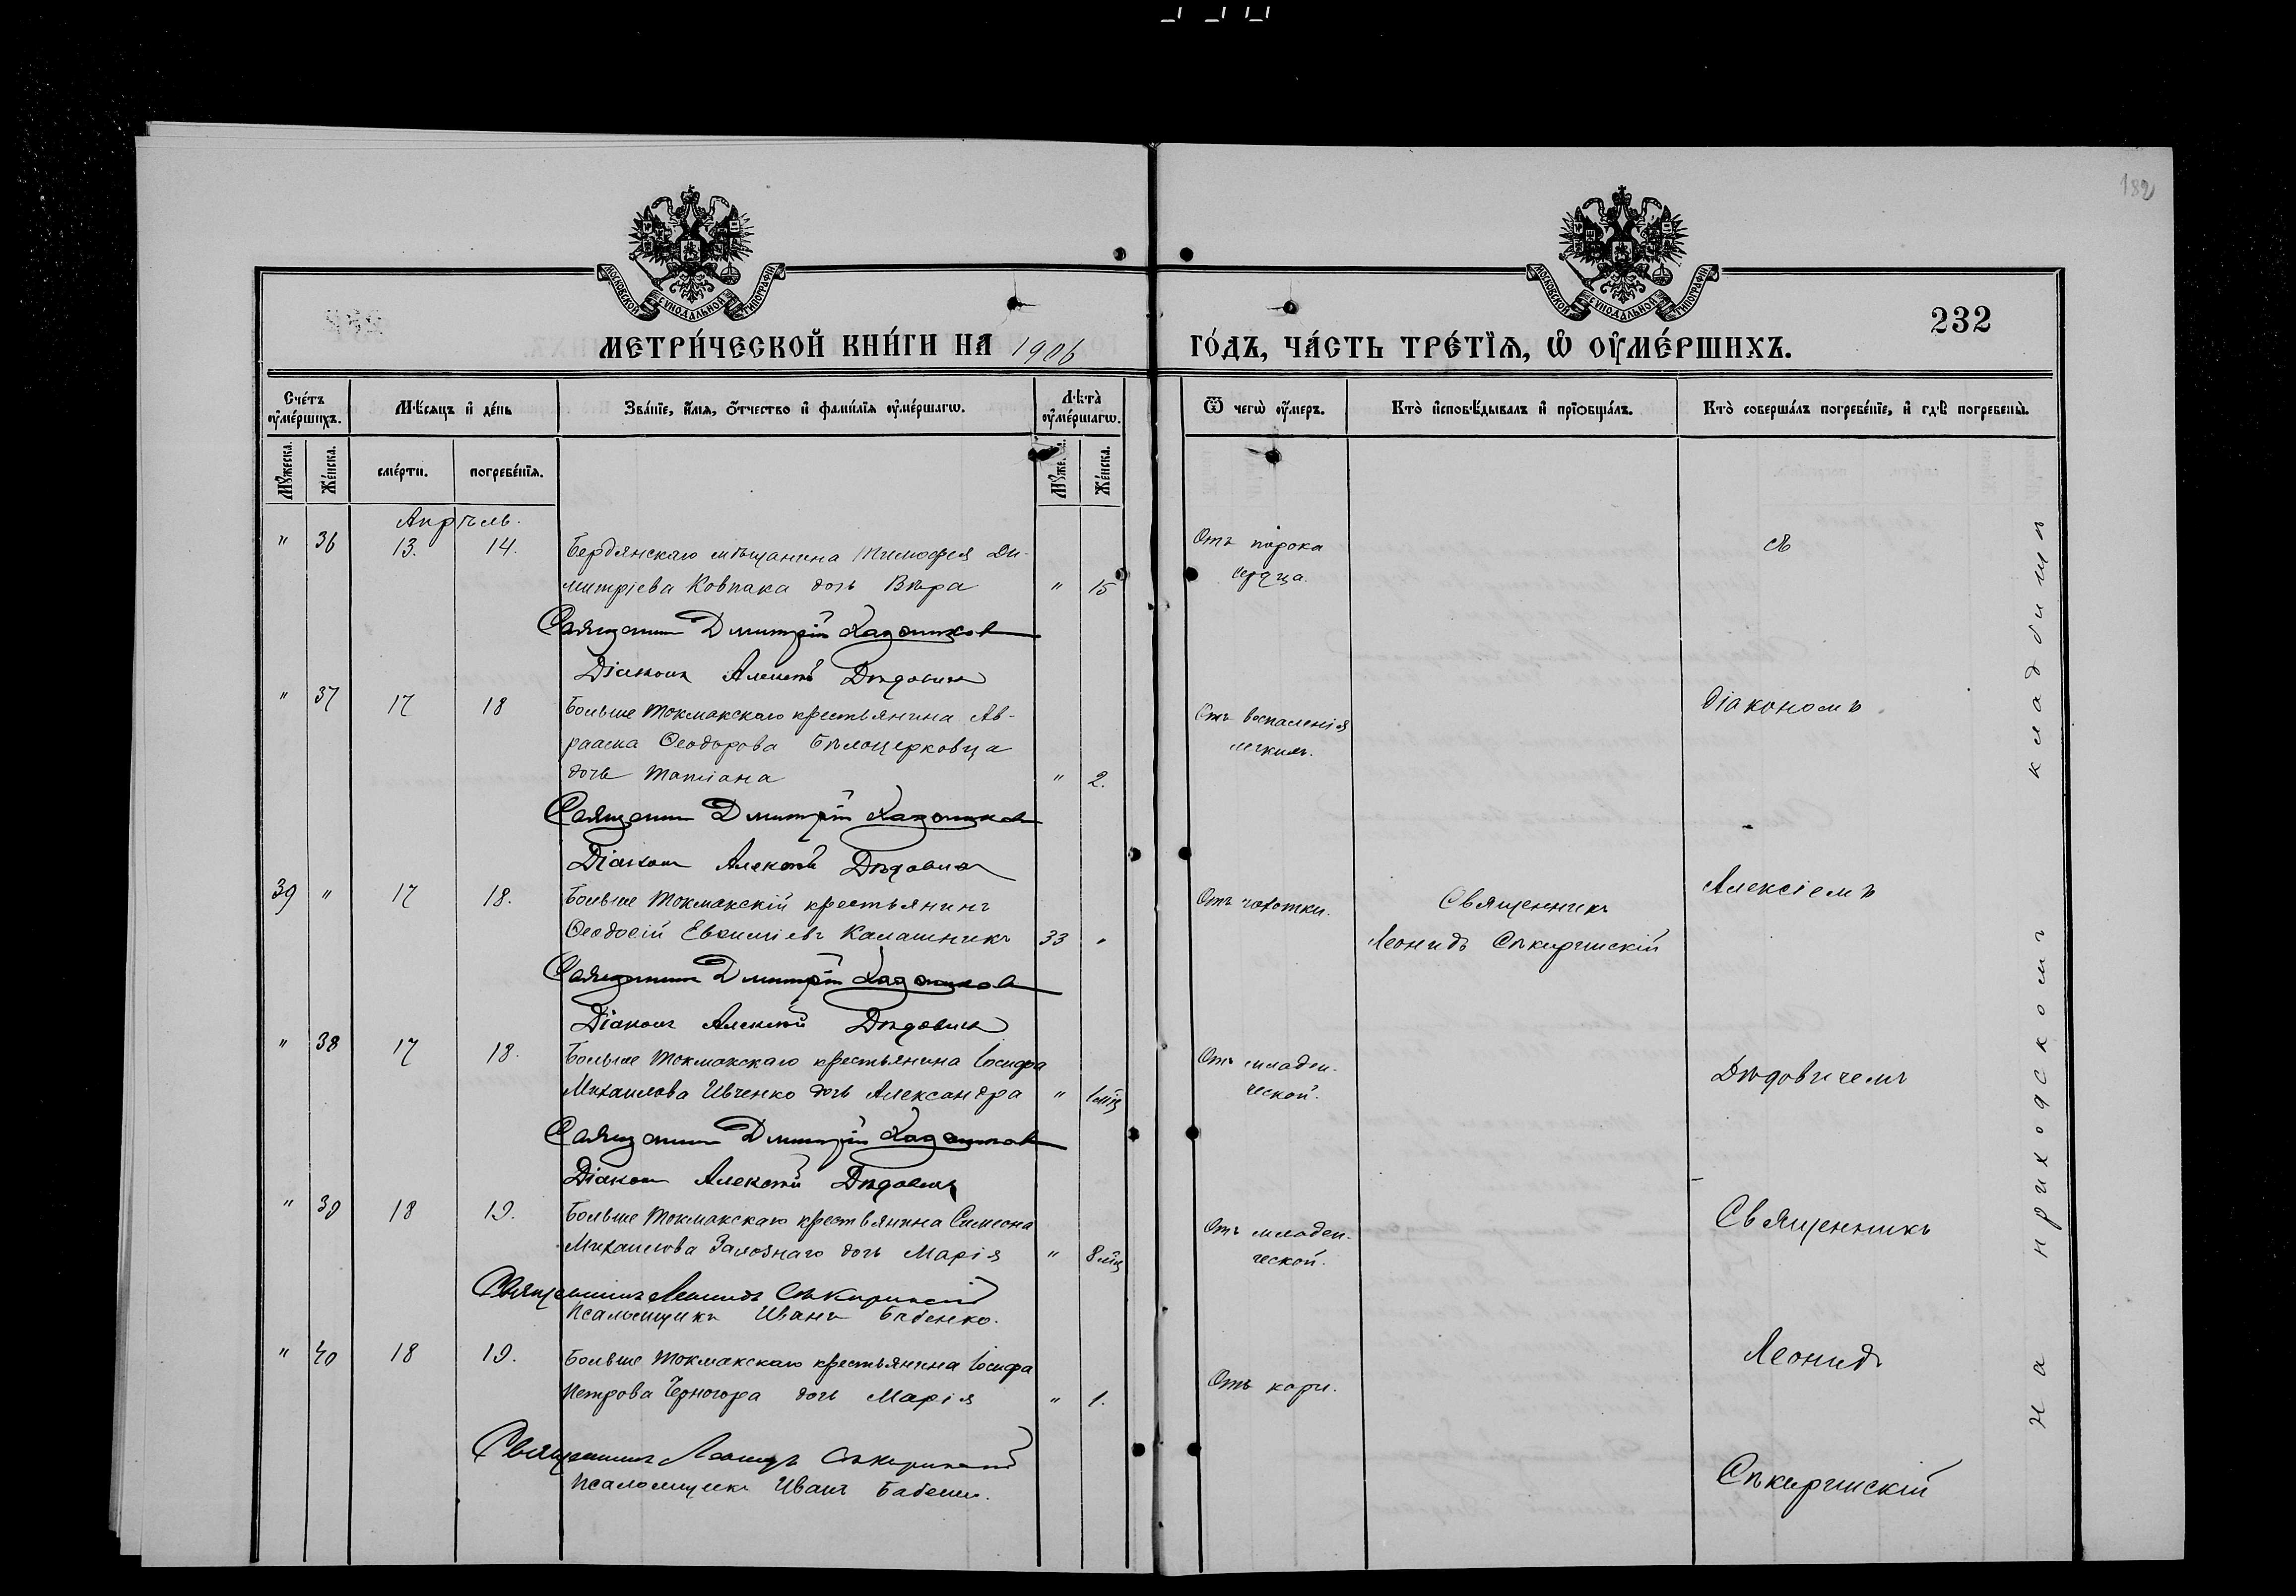 182
МОСКОВСКОЙ СѴНОДАЛЬНОЙ ТИПОГРАФІИ
МОСКОВСКОЙ СѴНОДАЛЬНОЙ ТИПОГРАФІИ
232
МЕТРИ́ЧЕСКОЙ КНИ́ГИ НА 1906 ГО́ДЪ, ЧА́СТЬ ТРЕ́ТІѦ, Ѡ ОУ҆МЕ́РШИХЪ.
Сче́тъ оу҆ме́ршихъ.
Мѣ́сѧцъ и҆ де́нь
Зва́нїе, и҆́мѧ, ѻ҆́тчество и҆ фамі́лїѧ оу҆ме́ршагѡ.
Лѣ́та̀ оу҆ме́ршагѡ.
Ѿ чегѡ̀ оу҆́меръ.
Кто̀ и҆сповѣ́дывалъ и҆ прїѡбща́лъ.
Кто̀ соверша́лъ погребе́нїе, и҆ гдѣ̀ погребены̀.
Мꙋ́жеска.
Же́нска.
сме́рти.
погребе́нїѧ.
Мꙋ́жеска.
Же́нска.
Апрѣль.
" 36 13. 14. Бердянскаго мѣщанина Тимофея Ди-
митріева Ковпака дочь Вѣра " 15
Отъ порока
сердца.
Священникъ Дмитрій
Діаконъ Алексѣй Дѣдовичъ
" 37 17 18 Больше Токмакскаго крестьянина Ав-
раама Ѳеодорова Бѣлоцерковца
дочь Татіана " 2.
Отъ воспаленія
легкихъ.
діакономъ
Священникъ Дмитрій
Діаконъ Алексѣй Дѣдовичъ
39 " 17 18. Больше Токмакскій крестьянинъ
Ѳеодосій Евѳиміевъ Калашникъ 33 "
Отъ чахотки.
Священникъ
Леонидъ Сѣкиринскій
Алексіемъ
Священникъ Дмитрій
Діаконъ Алексѣй Дѣдовичъ
" 38 17 18. Больше Токмакскаго крестьянина Іосифа
Михаилова Ивченко дочь Александра " 1 мѣц
Отъ младен-
ческой.
Дѣдовичемъ
Священникъ Дмитрій
Діаконъ Алексѣй Дѣдовичъ
" 39 18 19. Больше Токмакскаго крестьянина Симеона
Михаилова Залознаго дочь Марія " 8 мѣц
Отъ младен-
ческой.
Священникъ
Священникъ Леонидъ Сѣкиринскій
Псаломщикъ Иванъ Бабенко.
" 40 18 19. Больше Токмакскаго крестьянина Іосифа
Петрова Черногора дочь Марія " 1.
Отъ кори.
Леонидъ
Священникъ Леонидъ Сѣкиринскій
Псаломщикъ Иванъ Бабенко.
Сѣкиринскій
на приходскомъ кладбищѣ